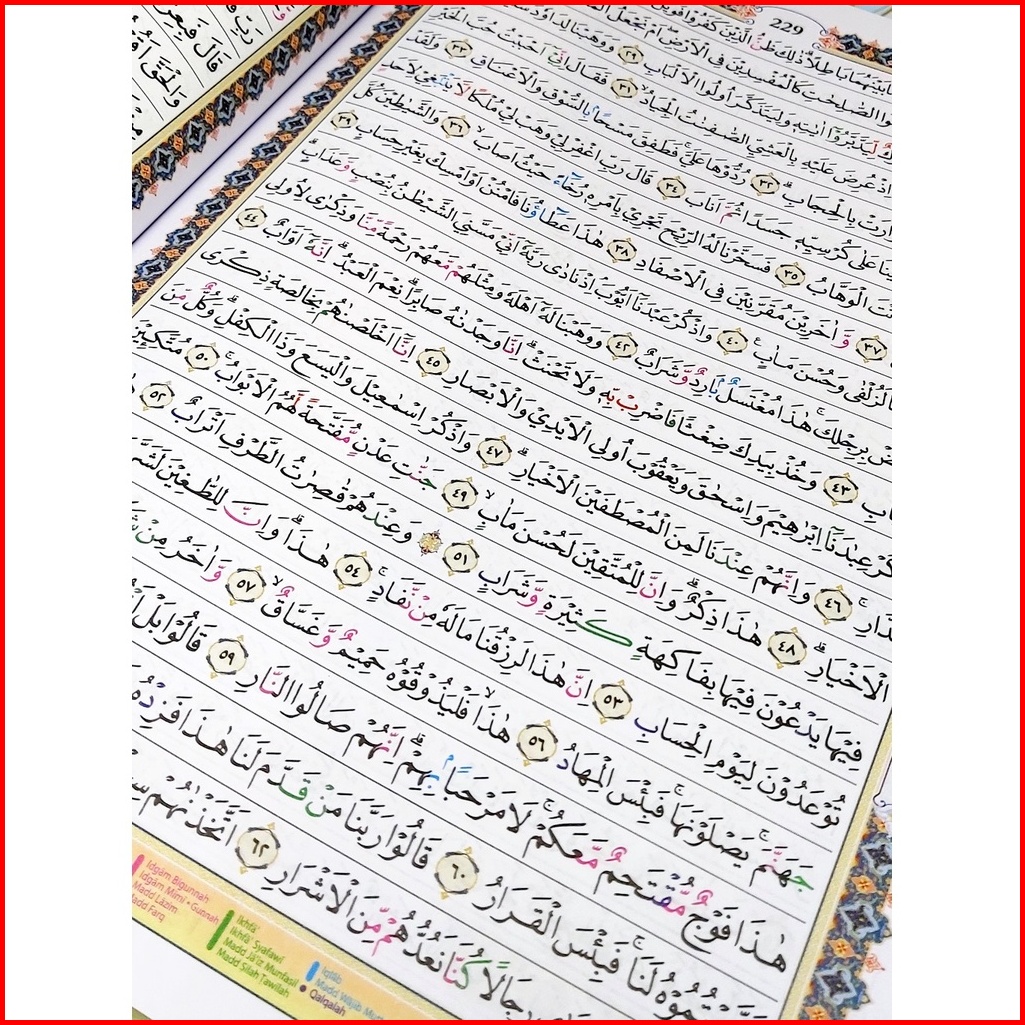 229
بَيْنَهُمَا بَاطِلًا ذٰلِكَ ظَنُّ الَّذِيْنَ كَفَرُوْا فَوَيْلٌ
الصّٰلِحٰتِ كَالْمُفْسِدِيْنَ فِى الْاَرْضِ اَمْ نَجْعَلُ
لِّيَدَّبَّرُوْٓا اٰيٰتِهٖ وَلِيَتَذَكَّرَ اُولُوا الْاَلْبَابِ ٢٩ وَوَهَبْنَا لِدَاوٗدَ
اِذْ عُرِضَ عَلَيْهِ بِالْعَشِيِّ الصّٰفِنٰتُ الْجِيَادُ ۙ ٣١ فَقَالَ اِنِّيْٓ اَحْبَبْتُ حُبَّ الْخَيْرِ
بِالْحِجَابِ ۗ ٣٢ رُدُّوْهَا عَلَيَّ ۚ فَطَفِقَ مَسْحًاۢ بِالسُّوْقِ وَالْاَعْنَاقِ ٣٣ وَلَقَدْ
عَلٰى كُرْسِيِّهٖ جَسَدًا ثُمَّ اَنَابَ ٣٤ قَالَ رَبِّ اغْفِرْ لِيْ وَهَبْ لِيْ مُلْكًا لَّا يَنْۢبَغِيْ لِاَحَدٍ
الْوَهَّابُ ٣٥ فَسَخَّرْنَا لَهُ الرِّيْحَ تَجْرِيْ بِاَمْرِهٖ رُخَاۤءً حَيْثُ اَصَابَ ۙ ٣٦ وَالشَّيٰطِيْنَ كُلَّ
٣٧ وَّاٰخَرِيْنَ مُقَرَّنِيْنَ فِى الْاَصْفَادِ ٣٨ هٰذَا عَطَاۤؤُنَا فَامْنُنْ اَوْ اَمْسِكْ بِغَيْرِ حِسَابٍ ٣٩
لَزُلْفٰى وَحُسْنَ مَاٰبٍ ۚ ٤٠ وَاذْكُرْ عَبْدَنَآ اَيُّوْبَ اِذْ نَادٰى رَبَّهٗٓ اَنِّيْ مَسَّنِيَ الشَّيْطٰنُ بِنُصْبٍ وَّعَذَابٍ
بِرِجْلِكَ ۚ هٰذَا مُغْتَسَلٌۢ بَارِدٌ وَّشَرَابٌ ٤٢ وَوَهَبْنَا لَهٗٓ اَهْلَهٗ وَمِثْلَهُمْ مَّعَهُمْ رَحْمَةً مِّنَّا وَذِكْرٰى لِاُولِى
٤٣ وَخُذْ بِيَدِكَ ضِغْثًا فَاضْرِبْ بِّهٖ وَلَا تَحْنَثْ ۗ اِنَّا وَجَدْنٰهُ صَابِرًا ۗ نِعْمَ الْعَبْدُ ۗ اِنَّهٗٓ اَوَّابٌ ٤٤
عِبٰدَنَآ اِبْرٰهِيْمَ وَاِسْحٰقَ وَيَعْقُوْبَ اُولِى الْاَيْدِيْ وَالْاَبْصَارِ ٤٥ اِنَّآ اَخْلَصْنٰهُمْ بِخَالِصَةٍ ذِكْرَى
الدَّارِ ۚ ٤٦ وَاِنَّهُمْ عِنْدَنَا لَمِنَ الْمُصْطَفَيْنَ الْاَخْيَارِ ۗ ٤٧ وَاذْكُرْ اِسْمٰعِيْلَ وَالْيَسَعَ وَذَا الْكِفْلِ ۗ وَكُلٌّ مِّنَ
الْاَخْيَارِ ۗ ٤٨ هٰذَا ذِكْرٌ ۗ وَاِنَّ لِلْمُتَّقِيْنَ لَحُسْنَ مَاٰبٍ ۙ ٤٩ جَنّٰتِ عَدْنٍ مُّفَتَّحَةً لَّهُمُ الْاَبْوَابُ ۚ ٥٠ مُتَّكِـِٕيْنَ
فِيْهَا يَدْعُوْنَ فِيْهَا بِفَاكِهَةٍ كَثِيْرَةٍ وَّشَرَابٍ ٥١ ۞ وَعِنْدَهُمْ قٰصِرٰتُ الطَّرْفِ اَتْرَابٌ ٥٢
تُوْعَدُوْنَ لِيَوْمِ الْحِسَابِ ٥٣ اِنَّ هٰذَا لَرِزْقُنَا مَا لَهٗ مِنْ نَّفَادٍ ۚ ٥٤ هٰذَا ۗ وَاِنَّ لِلطّٰغِيْنَ لَشَرَّ
جَهَنَّمَ ۚ يَصْلَوْنَهَا ۚ فَبِئْسَ الْمِهَادُ ٥٦ هٰذَا ۙ فَلْيَذُوْقُوْهُ حَمِيْمٌ وَّغَسَّاقٌ ۙ ٥٧ وَّاٰخَرُ مِنْ
هٰذَا فَوْجٌ مُّقْتَحِمٌ مَّعَكُمْ ۚ لَا مَرْحَبًاۢ بِهِمْ ۗ اِنَّهُمْ صَالُوا النَّارِ ٥٩ قَالُوْا بَلْ
لَنَا ۚ فَبِئْسَ الْقَرَارُ ٦٠ قَالُوْا رَبَّنَا مَنْ قَدَّمَ لَنَا هٰذَا فَزِدْهُ
كُنَّا نَعُدُّهُمْ مِّنَ الْاَشْرَارِ ٦٢ اَتَّخَذْنٰهُمْ
Idgām Bigunnah
Idgām Mimi • Gunnah
Madd Lāzim
Madd Farq
Ikhfā'
Ikhfā' Syafawi
Madd Jā'iz Munfasil
Madd Silah Ṭawīlah
Iqlāb
Madd Wājib
Qalqalah